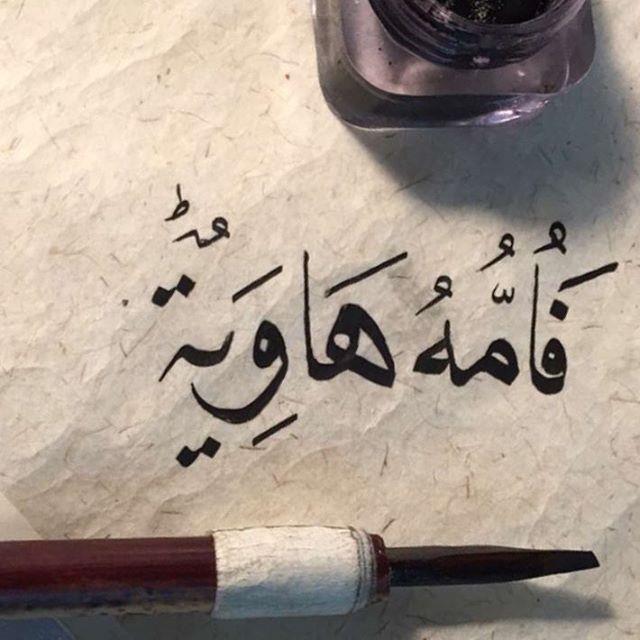 فَاُمُّهُ هَاوِيَةٌ